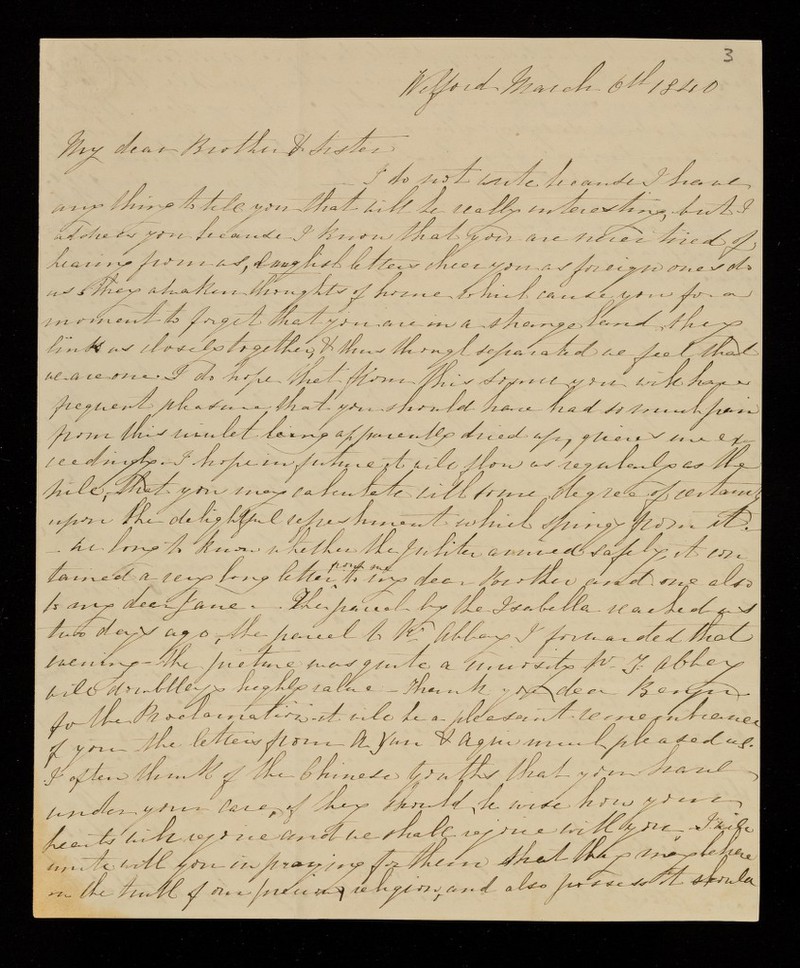 3
Wilford March 6th 1840
My dear Brother & Sister
I do not write because I have
any thing to tell you that will be really interesting, but I
address you because I know that you are never tired of
hearing from us, & english letters cheer you as foreign ones do
us, they awaken thoughts of home which cause you for a
moment to forget that you are in a strange land, they
link us closely together, & thus though separated we feel that
we are one. I do hope that from this source you will have
frequent pleasure, that you should have had so much pain
from this rivulet being apparently dried up, grieves me ex-
ceedingly. I hope in future it will flow as regularly as the
Nile, that you may calculate with some degree of certainty
upon the delightful refreshment which springs from it.
- We long to know whether the Jupiter arrived safely, it con
tained a very long letter from me to my dear Brother and one also
to my dear Jane. The parcel by the Isabella reached us
two days ago, the parcel to Mr Abbay I forwarded that
evening - the picture was quite a curiosity Mr T. Abbay
will doubtless highly value - Thank you dear Benjn
for the Proclamation it will be a pleasant remembrance
of you the letters from A Yun & Agui much pleased us.
I often think of the Chinese Youths that you have
under your care, if they should be wise how your
hearts will rejoice and we shall rejoice with you. I will
unite with you in praying for them that they may believe
in the truth of our precious religion, and also possess it should